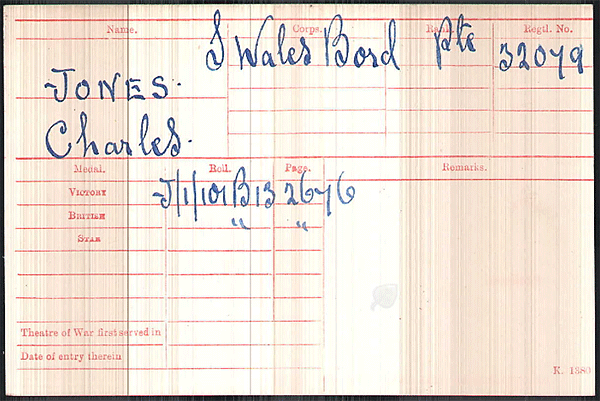 Name. Corps. Rank. Regtl. No.
S Wales Bord Pte 32079
JONES.
Charles.
Medal. Roll. Page. Remarks.
VICTORY J/1/101B13 2676
BRITISH " "
STAR
Theatre of War first served in
Date of entry therein
K. 1380